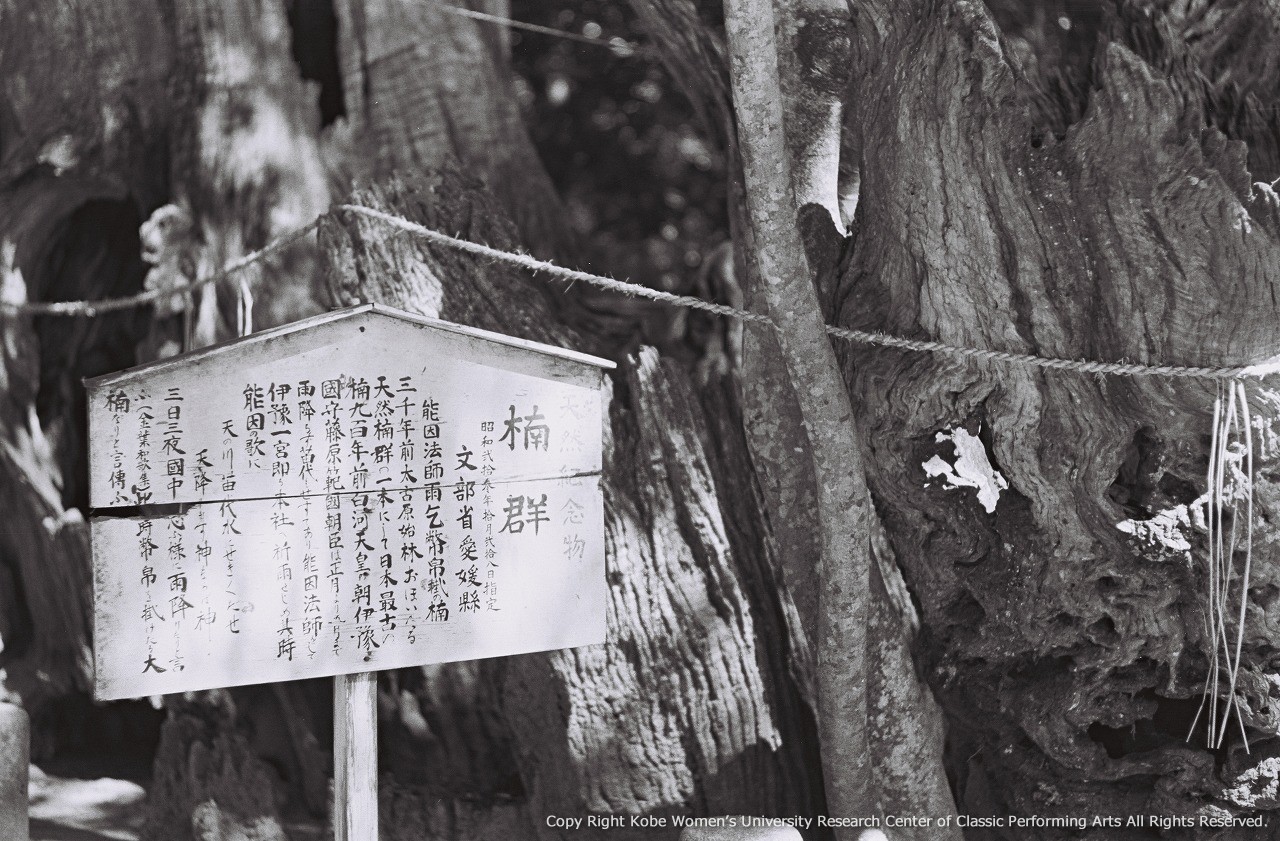 天然紀念物
楠群
昭和弐拾参年拾月弐拾八日指定
文部省愛媛縣
能因法師雨乞幣帛懸の楠
三千年前太古原始林おほいたる
天然楠群の一本にして日本最古の
楠九百年前白河天皇の朝伊豫
國守藤原範國朝臣正月より
雨降らず苗代能因法師をして
伊豫一宮即ち本社に祈雨せしめ其時
能因の歌に
天の川苗代水にせきくだせ
天降ります神ならば神
三日三夜國中
ふ（金葉歌集）此時幣帛を懸けたる大
楠なりと言傳ふ
Copy Right Kobe Women's University Research Center of Classic Performing Arts All Rights Reserved.